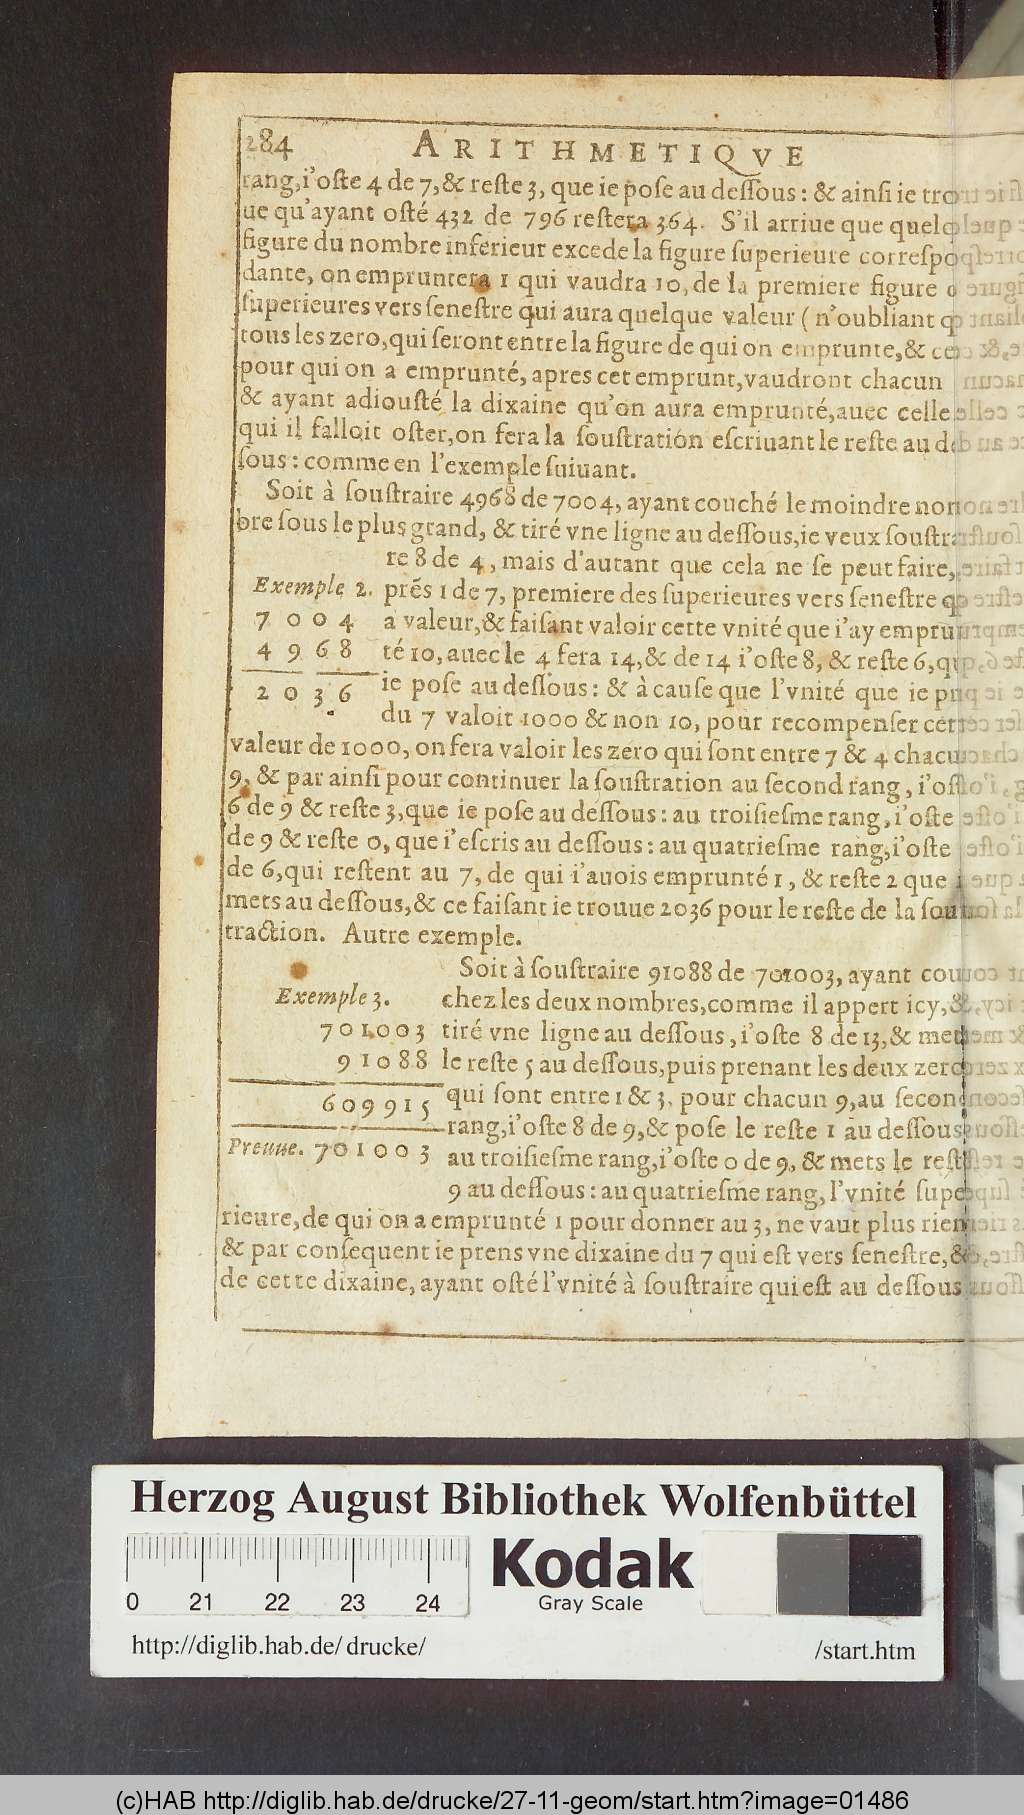 284 ARITHMETIQVE
rang, i'oste 4 de 7, & reste 3, que ie pose au dessous : & ainsi ie trou
ue qu'ayant osté 432 de 796 restera 364. S'il arriue que quelq
figure du nombre inferieur excede la figure superieure correspo
dante, on empruntera 1 qui vaudra 10, de la premiere figure
superieures vers senestre qui aura quelque valeur (n'oubliant q
tous les zero, qui seront entre la figure de qui on emprunte, & ce
pour qui on a emprunté, apres cet emprunt, vaudront chacun
& ayant adiousté la dixaine qu'on aura emprunté, auec celle
qui il falloit oster, on fera la soustratión escriuant le reste au de
sous : comme en l'exemple suiuant.
Soit à soustraire 4968 de 7004, ayant couché le moindre nom
bre sous le plus grand, & tiré vne ligne au dessous, ie veux soustra
re 8 de 4, mais d'autant que cela ne se peut faire,
Exemple 2. prés 1 de 7, premiere des superieures vers senestre q
7 0 0 4 a valeur, & faisant valoir cette vnité que i'ay emprun
4 9 6 8 té 10, auec le 4 fera 14, & de 14 i'oste 8, & reste 6, qu
2 0 3 6 ie pose au dessous : & à cause que l'vnité que ie p
du 7 valoit 1000 & non 10, pour recompenser cett
valeur de 1000, on fera valoir les zero qui sont entre 7 & 4 chacu
9, & par ainsi pour continuer la soustration au second rang, i'ost
6 de 9 & reste 3, que ie pose au dessous : au troisiesme rang, i'oste
de 9 & reste 0, que i'escris au dessous : au quatriesme rang, i'oste
de 6, qui restent au 7, de qui i'auois emprunté 1, & reste 2 que
mets au dessous, & ce faisant ie trouue 2036 pour le reste de la sou
traction. Autre exemple.
Soit à soustraire 91088 de 701003, ayant cou
Exemple 3. chez les deux nombres, comme il appert icy, &
701003 tiré vne ligne au dessous, i'oste 8 de 13, & mets
91088 le reste 5 au dessous, puis prenant les deux zero
609915 qui sont entre 1 & 3, pour chacun 9, au second
rang, i'oste 8 de 9, & pose le reste 1 au dessous
Preuue. 701003 au troisiesme rang, i'oste 0 de 9, & mets le rest
9 au dessous : au quatriesme rang, l'vnité supe
rieure, de qui on a emprunté 1 pour donner au 3, ne vaut plus rien
& par consequent ie prens vne dixaine du 7 qui est vers senestre, &
de cette dixaine, ayant osté l'vnité à soustraire qui est au dessous
Herzog August Bibliothek Wolfenbüttel
0 21 22 23 24
Kodak
Gray Scale
http://diglib.hab.de/drucke/ /start.htm
(c)HAB http://diglib.hab.de/drucke/27-11-geom/start.htm?image=01486